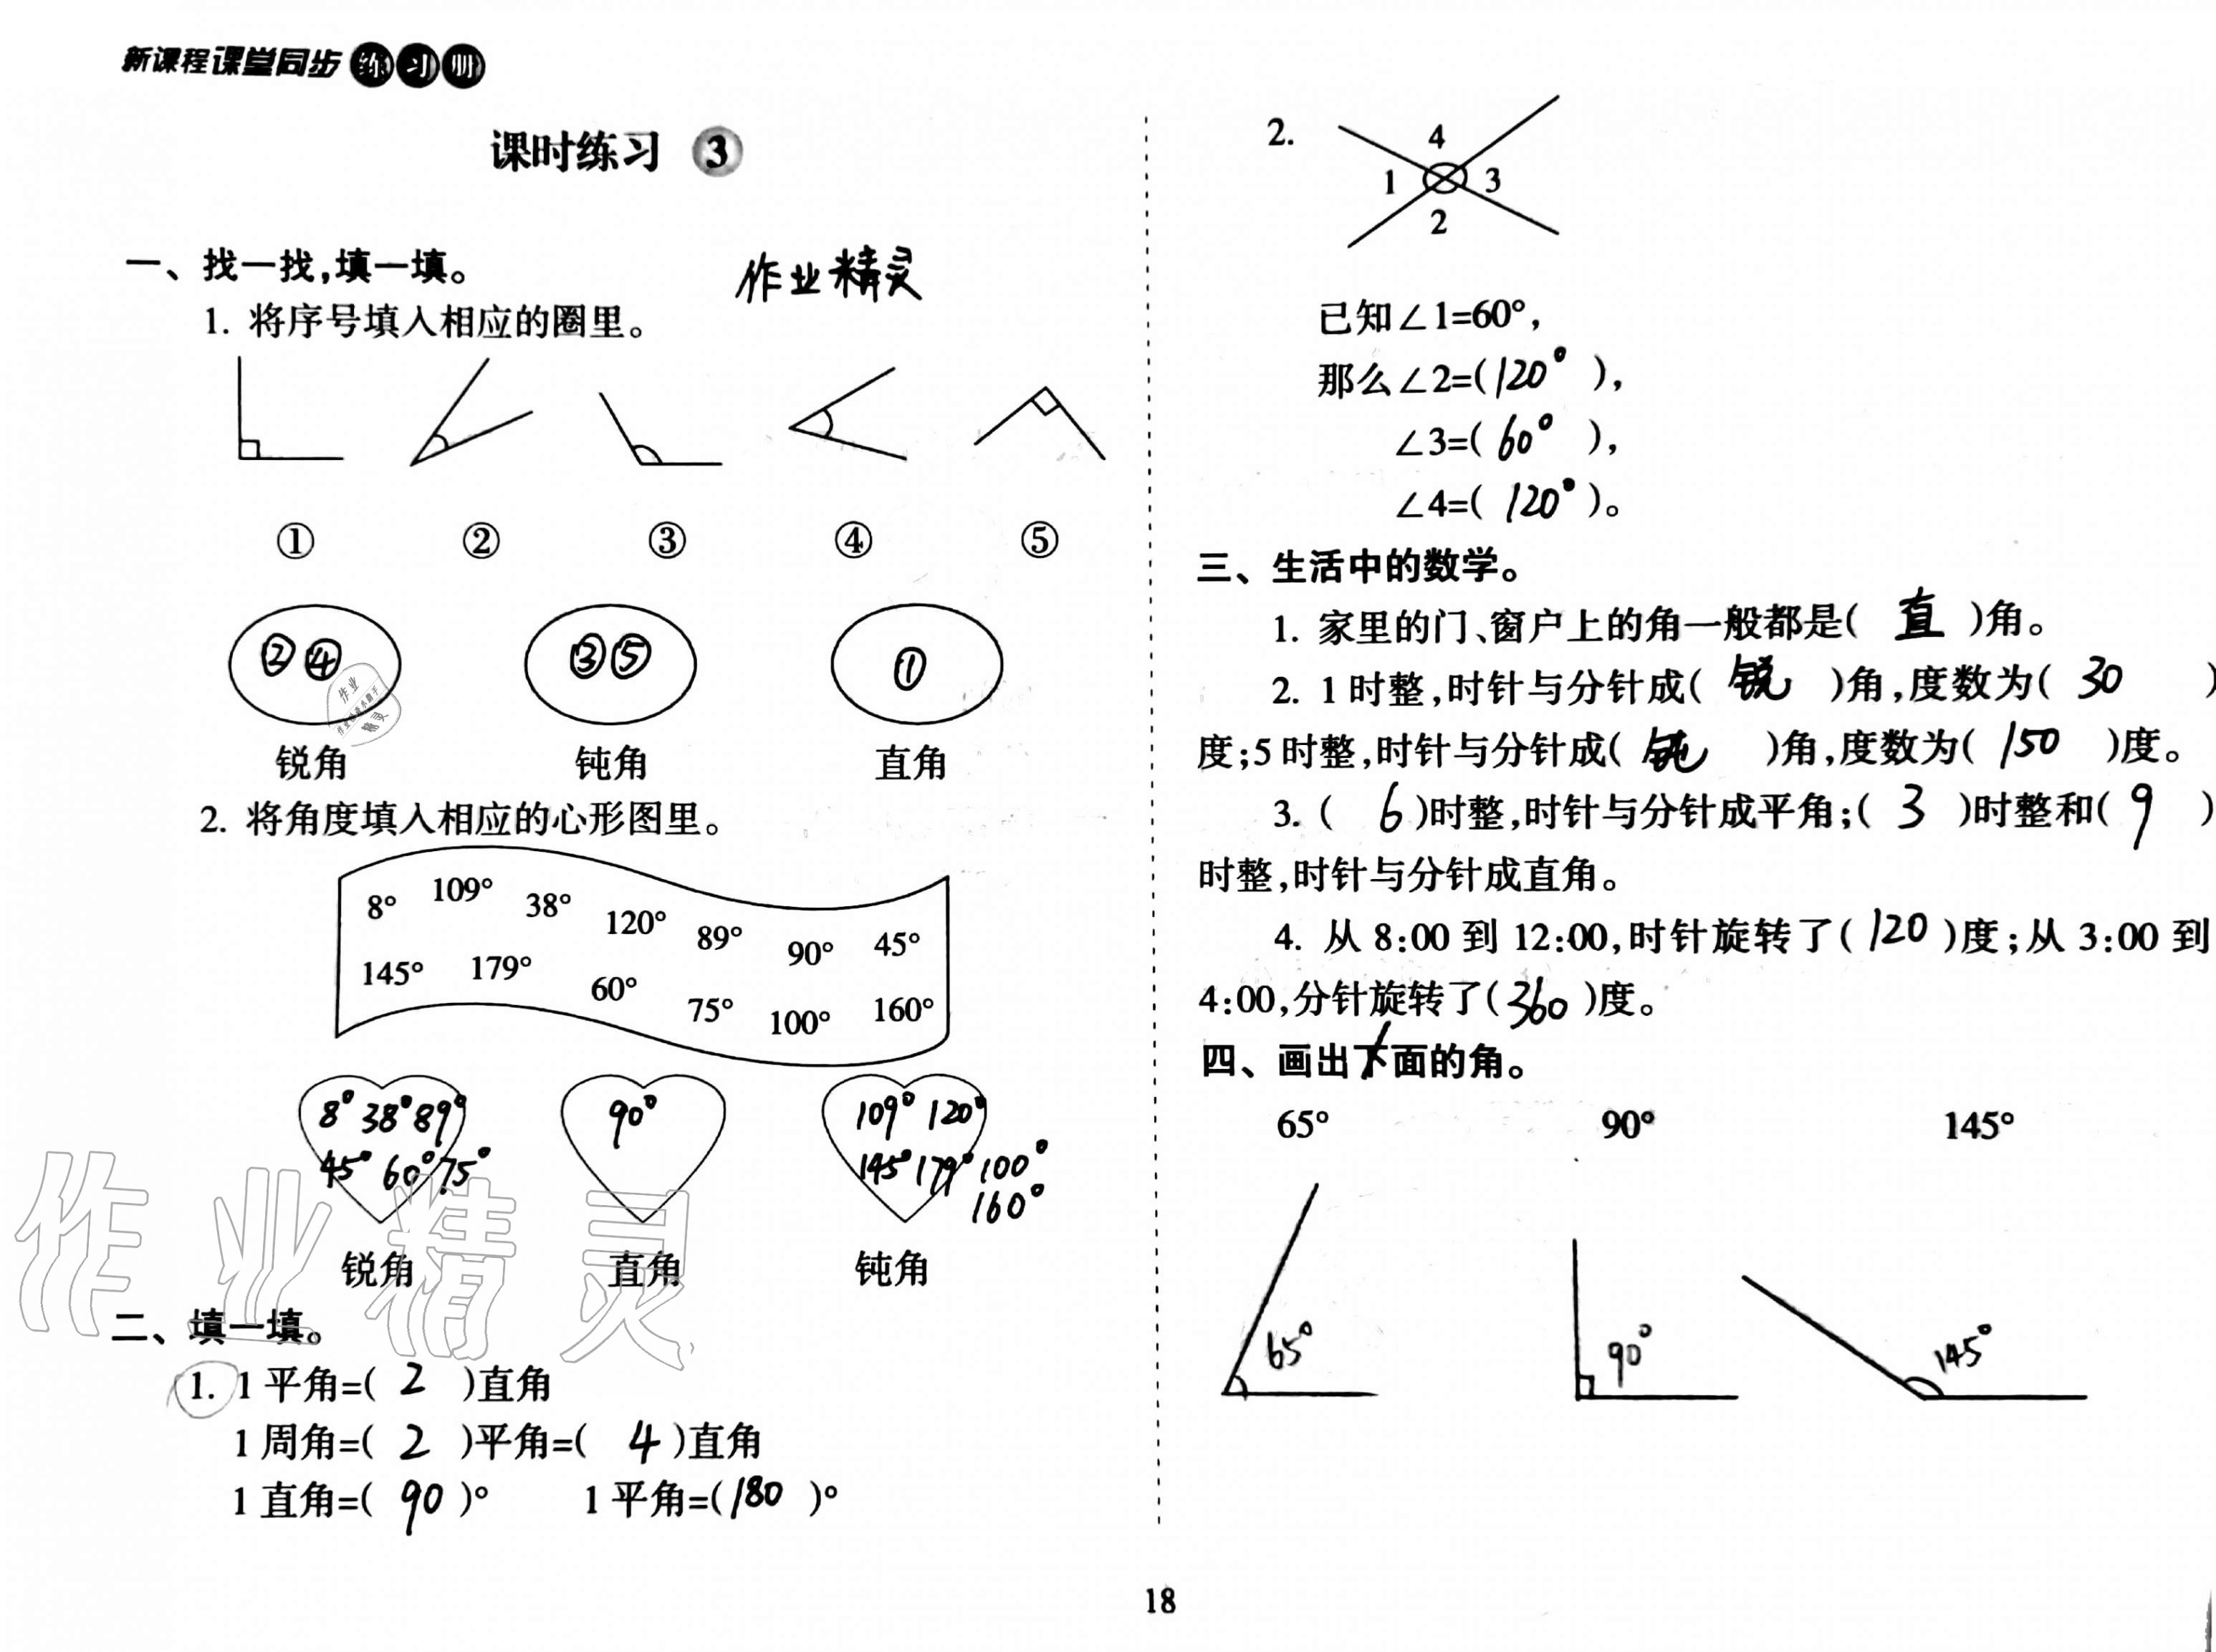 新课程课堂同步练习册
课时练习 3
一、找一找,填一填。
作业精灵
1. 将序号填入相应的圈里。
① ② ③ ④ ⑤
②④ ③⑤ ①
锐角 钝角 直角
2. 将角度填入相应的心形图里。
8° 109° 38° 120° 89° 90° 45°
145° 179° 60° 75° 100° 160°
8° 38° 89° 90° 109° 120°
45° 60° 75° 145° 179° 100°
160°
锐角 直角 钝角
二、填一填。
1. 1平角=( 2 )直角
1周角=( 2 )平角=( 4 )直角
1直角=( 90 )° 1平角=( 180 )°
2.
4
1 3
2
已知∠1=60°,
那么∠2=( 120° ),
∠3=( 60° ),
∠4=( 120° )。
三、生活中的数学。
1. 家里的门、窗户上的角一般都是( 直 )角。
2. 1时整,时针与分针成( 锐 )角,度数为( 30 )
度;5时整,时针与分针成( 钝 )角,度数为( 150 )度。
3. ( 6 )时整,时针与分针成平角;( 3 )时整和( 9 )
时整,时针与分针成直角。
4. 从 8:00 到 12:00,时针旋转了( 120 )度;从 3:00 到
4:00,分针旋转了( 360 )度。
四、画出下面的角。
65° 90° 145°
65° 90° 145°
18
作业精灵